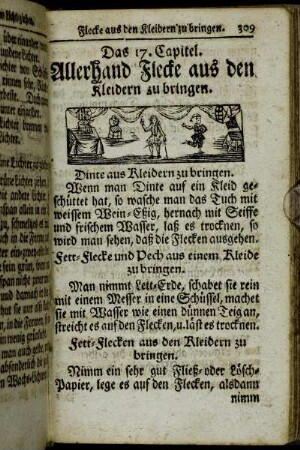 Flecke aus den Kleidern zu bringen. 309
Das 17. Capitel.
Allerhand Flecke aus den
Kleidern zu bringen.
Dinte aus Kleidern zu bringen.
Wenn man Dinte auf ein Kleid ge-
schüttet hat, so wasche man das Tuch mit
weissem Wein-Eßig, hernach mit Seiffe
und frischem Wasser, laß es trocknen, so
wird man sehen, daß die Flecken ausgehen.
Fett-Flecke und Pech aus einem Kleide
zu bringen.
Man nimmt Lett-Erde, schabet sie rein
mit einem Messer in eine Schüssel, machet
sie mit Wasser wie einen dünnen Teig an,
streicht es auf den Flecken, u. läst es trocknen.
Fett-Flecken aus den Kleidern zu
bringen.
Nimm ein sehr gut Fließ- oder Lösch-
Papier, lege es auf den Flecken, alsdann
nimm